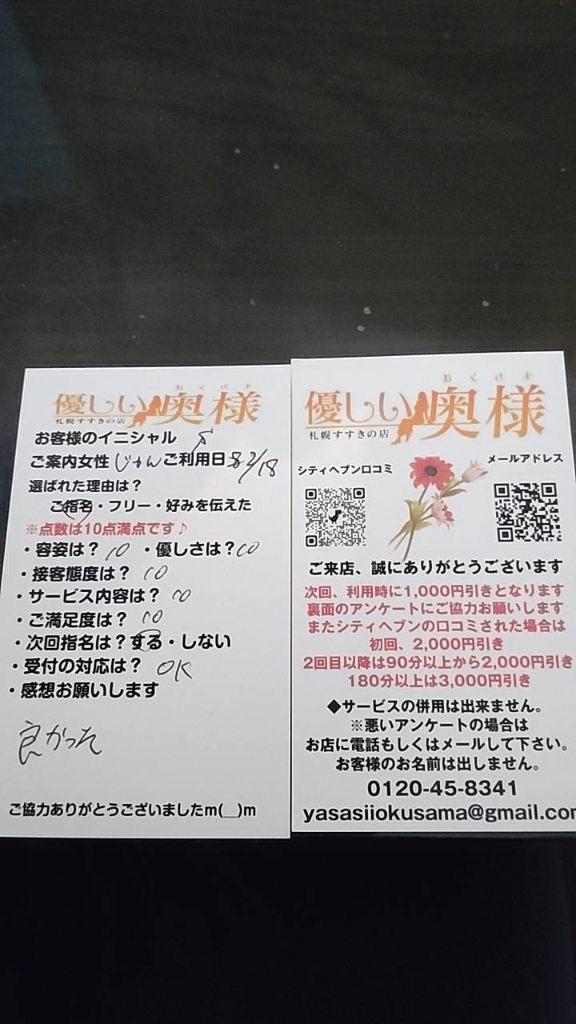 おくさま
優しい奥様
札幌すすきの店
お客様のイニシャル
ご案内女性 じゅん ご利用日 2/18
選ばれた理由は?
ご指名・フリー・好みを伝えた
※点数は10点満点です♪
・容姿は? 10 ・優しさは? 10
・接客態度は? 10
・サービス内容は? 10
・ご満足度は? 10
・次回指名は?する・しない
・受付の対応は? OK
・感想お願いします
良かった
ご協力ありがとうございましたm(__)m
おくさま
優しい奥様
札幌すすきの店
シティヘブン口コミ
メールアドレス
ご来店、誠にありがとうございます
次回、利用時に1,000円引きとなります
裏面のアンケートにご協力お願いします
またシティヘブンの口コミされた場合は
初回、2,000円引き
2回目以降は90分以上から2,000円引き
180分以上は3,000円引き
◆サービスの併用は出来ません。
※悪いアンケートの場合は
お店に電話もしくはメールして下さい。
お客様のお名前は出しません。
0120-45-8341
yasasiiokusama@gmail.com